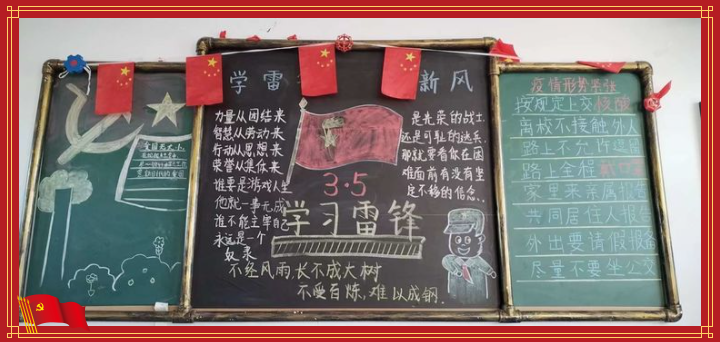 学雷
新风
力量从团结来
智慧从劳动来
行动从思想来
荣誉从集体来
谁要是游戏人生
他就一事无成
谁不能主宰自己
永远是一个
奴隶
是光荣的战士
还是可耻的逃兵
那就要看你在困
难面前有没有坚
定不移的信念..
3·5
学习雷锋
不经风雨,长不成大树
不受百炼,难以成钢.
疫情形势严峻
按规定上交核酸
离校不接触外人
路上不允许逗留
路上全程
家里来亲属报告
共同居住人报告
外出要请假报备
尽量不要坐公交